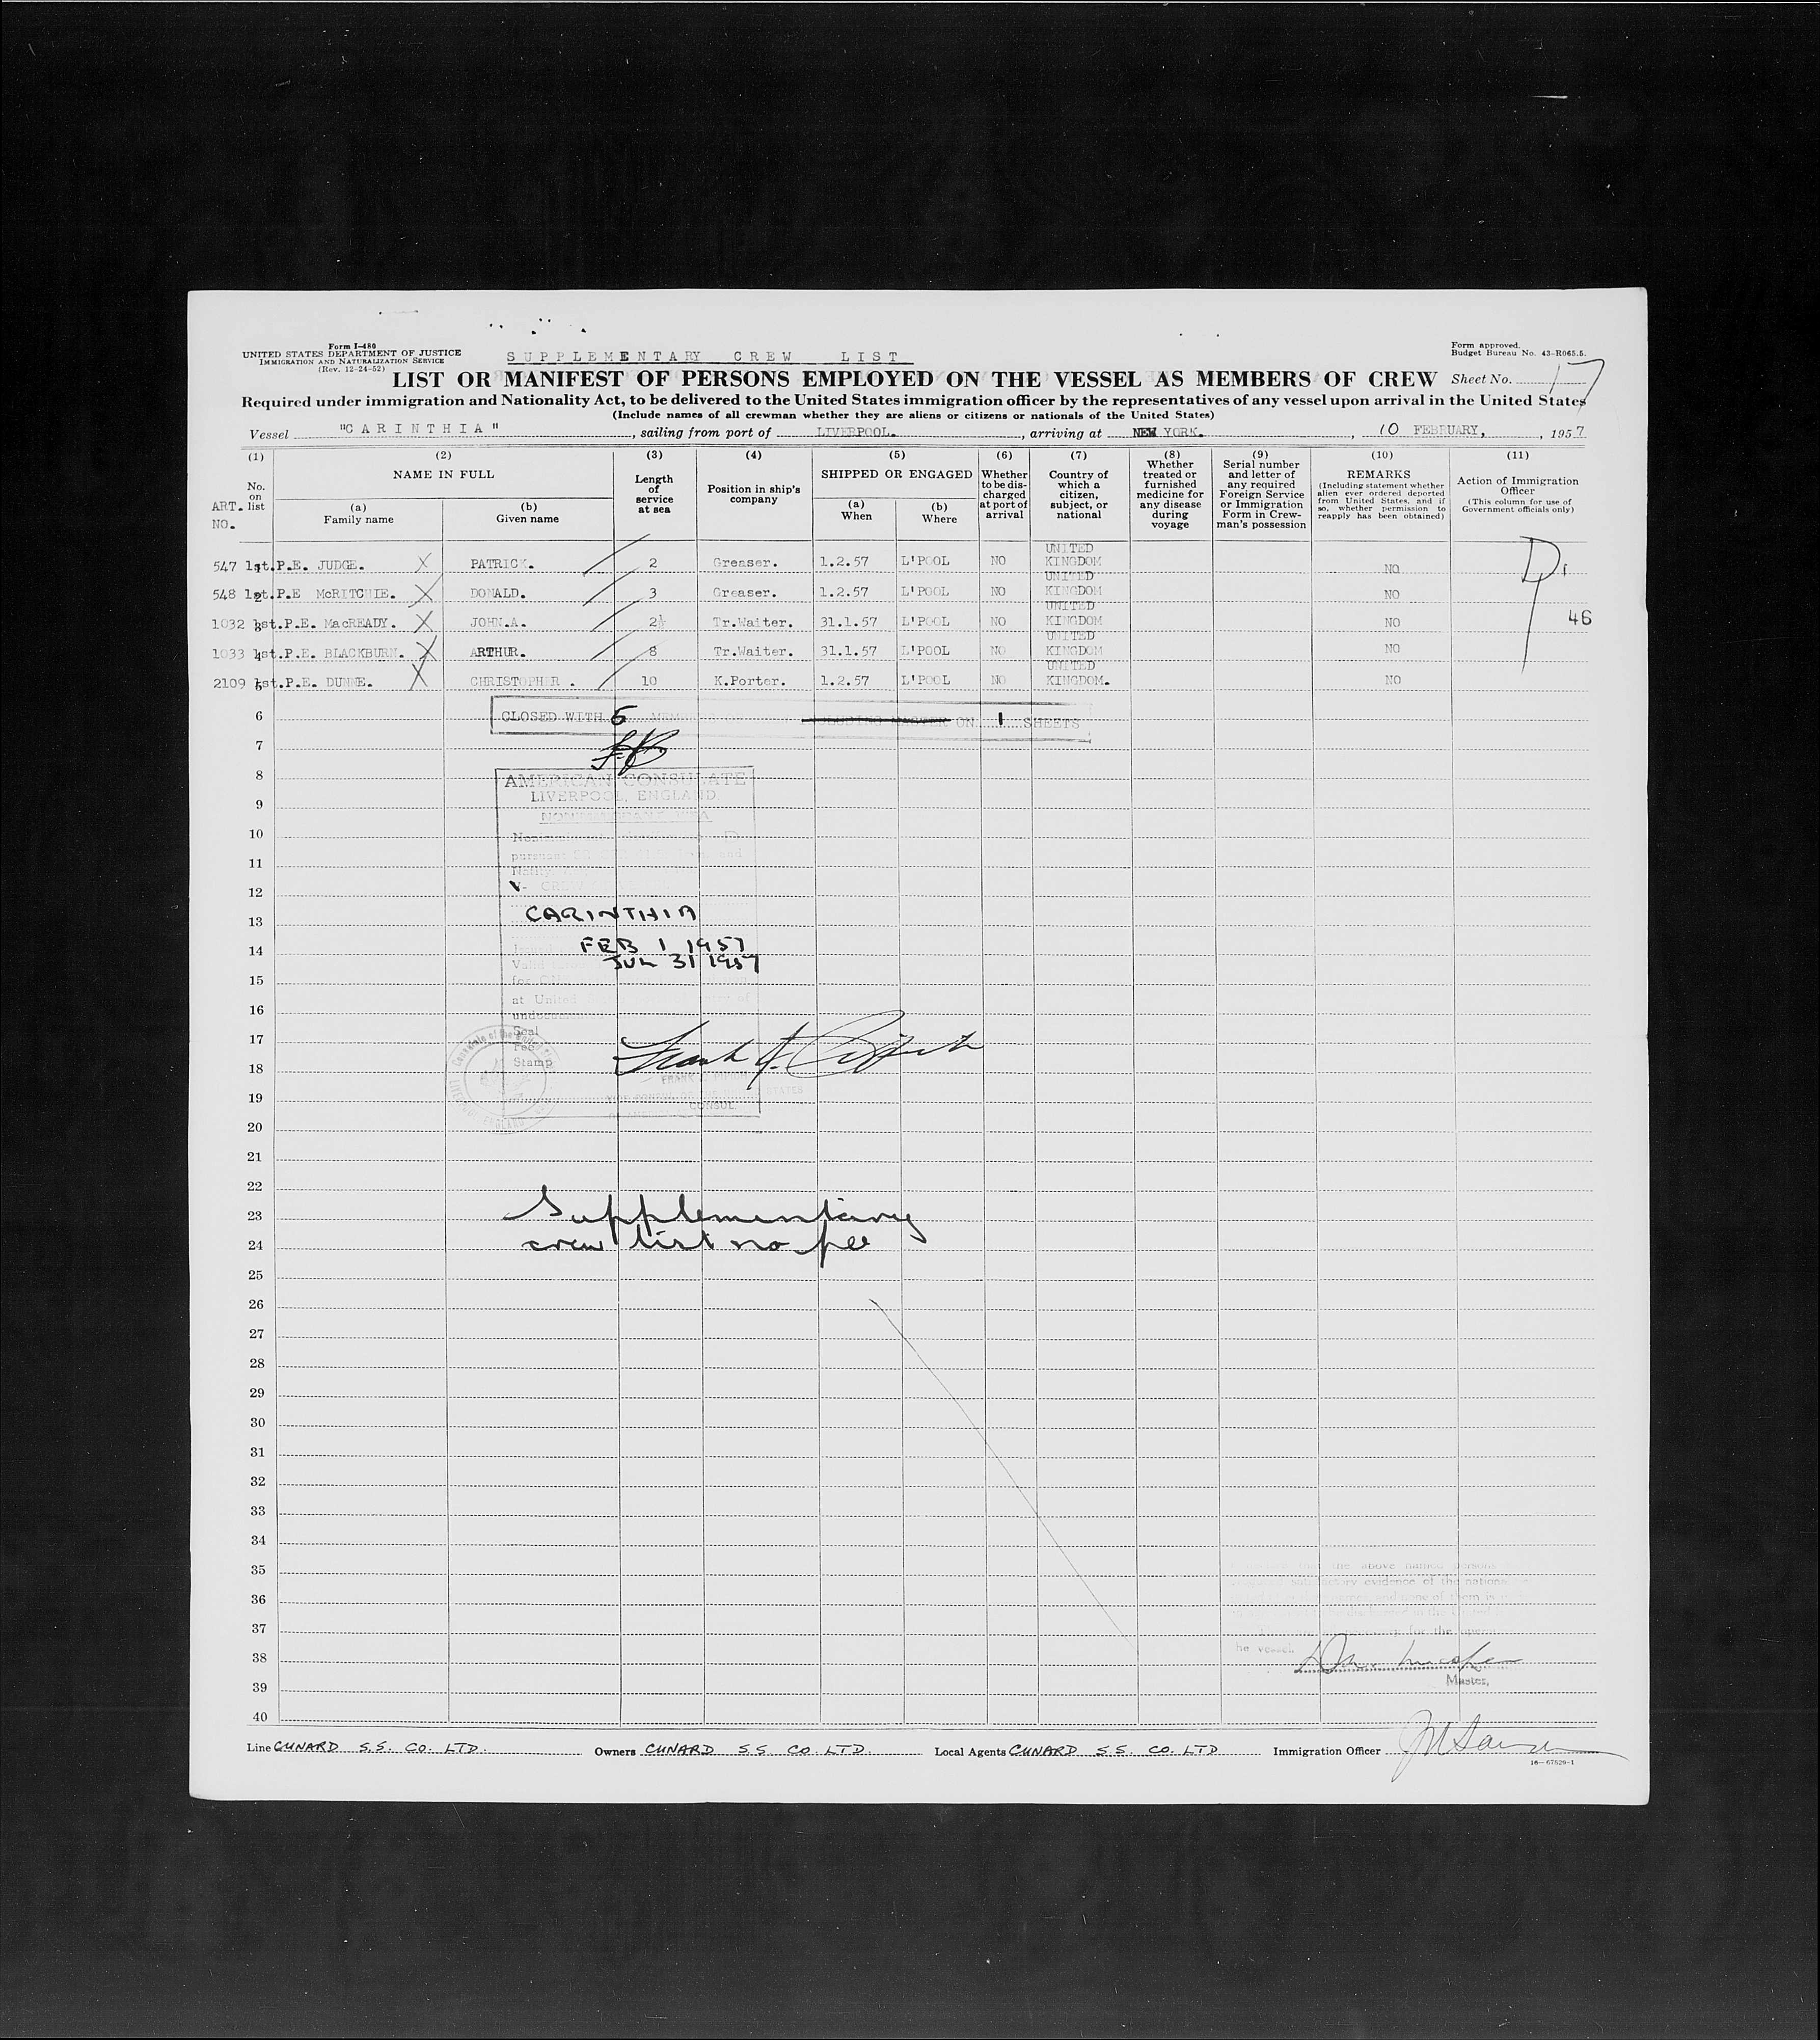 Form I-480
UNITED STATES DEPARTMENT OF JUSTICE
IMMIGRATION AND NATURALIZATION SERVICE
(Rev. 12-24-52)
SUPPLEMENTARY CREW LIST
Form approved.
Budget Bureau No. 43-R065.5.
LIST OR MANIFEST OF PERSONS EMPLOYED ON THE VESSEL AS MEMBERS OF CREW Sheet No. 17
Required under immigration and Nationality Act, to be delivered to the United States immigration officer by the representatives of any vessel upon arrival in the United States
(Include names of all crewman whether they are aliens or citizens or nationals of the United States)
Vessel "CARINTHIA", sailing from port of LIVERPOOL., arriving at NEW YORK., 10 FEBRUARY, 1957
(1) ART. NO. No. on list
(2) NAME IN FULL
(a) Family name
(b) Given name
(3) Length of service at sea
(4) Position in ship's company
(5) SHIPPED OR ENGAGED
(a) When
(b) Where
(6) Whether to be discharged at port of arrival
(7) Country of which a citizen, subject, or national
(8) Whether treated or furnished medicine for any disease during voyage
(9) Serial number and letter of any required Foreign Service or Immigration Form in Crewman's possession
(10) REMARKS (Including statement whether alien ever ordered deported from United States, and if so, whether permission to reapply has been obtained)
(11) Action of Immigration Officer (This column for use of Government officials only)
547 1st.P.E. JUDGE. X PATRICK. 2 Greaser. 1.2.57 L'POOL NO UNITED KINGDOM NO
548 1st.P.E McRITCHIE. X DONALD. 3 Greaser. 1.2.57 L'POOL NO UNITED KINGDOM NO
1032 1st.P.E. MacREADY. X JOHN.A. 2½ Tr.Waiter. 31.1.57 L'POOL NO UNITED KINGDOM NO 46
1033 1st.P.E. BLACKBURN. X ARTHUR. 8 Tr.Waiter. 31.1.57 L'POOL NO UNITED KINGDOM NO
2109 1st.P.E. DUNNE. X CHRISTOPHER. 10 K.Porter. 1.2.57 L'POOL NO UNITED KINGDOM. NO
6 CLOSED WITH 5 ON 1 SHEETS
7
8 AMERICAN CONSULATE
LIVERPOOL, ENGLAND.
9
NONIMMIGRANT VISA
10
11
12
13 CARINTHIA
14 FEB 1 1957
JUL 31 1957
15
16
17 Seal
Fee
Stamp
18
19 CONSUL
20
21
22
23 Supplementary
24 crew list no fee
25
26
27
28
29
30
31
32
33
34
35 the above named persons
36
37
38
39 Master,
40
Line CUNARD S.S. CO. LTD. Owners CUNARD S.S. CO. LTD. Local Agents CUNARD S.S. CO. LTD Immigration Officer
16—67529-1